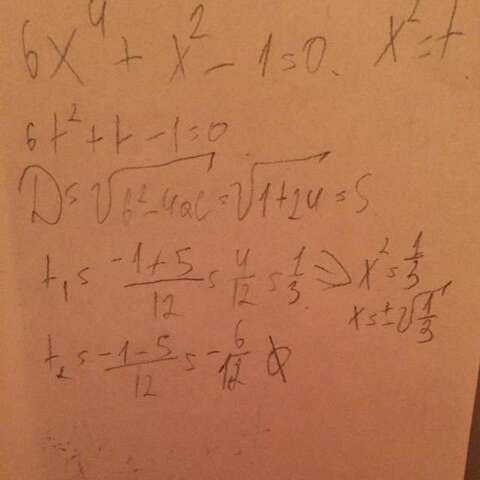 6x⁴ + x² - 1 = 0. x² = t
6t² + t - 1 = 0
D = √(b² - 4ac) = √(1+24) = 5
t₁ = (-1+5)/12 = 4/12 = 1/3 ⇒ x² = 1/3
x = ±√(1/3)
t₂ = (-1-5)/12 = -6/12 ∅